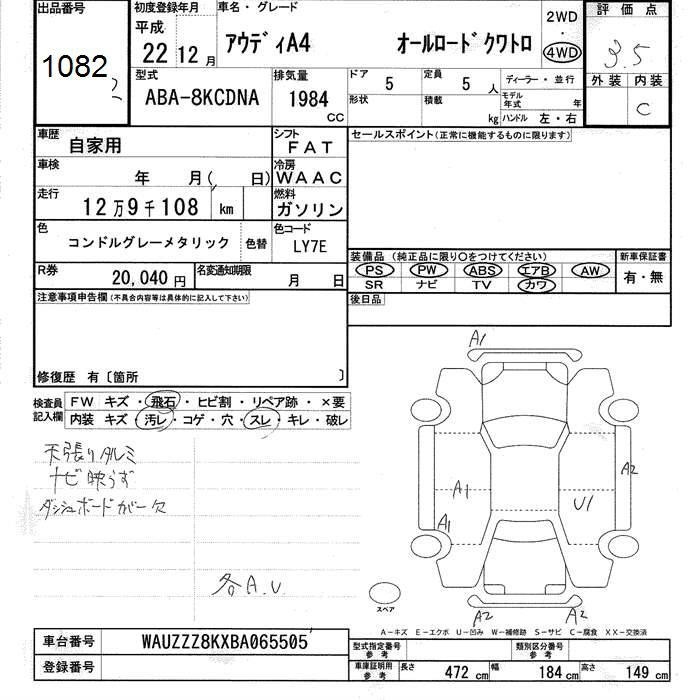 出品番号 初度登録年月 車名・グレード 2WD ・ 4WD 評価点
1082
平成 22 年 12 月 アウディA4 オールロードクワトロ 3.5
型式 排気量 ドア 5 定員 5 人 ディーラー・並行 外装 内装
ABA-8KCDNA 1984 CC 形状 積載 kg モデル年式 年 C
ハンドル 左・右
車歴 自家用 シフト FAT セールスポイント(正常に機能するものに限ります)
車検 年 月( 日) 冷房 WAAC
走行 12万9千108 km 燃料 ガソリン
色 コンドルグレーメタリック 色替 色コード LY7E
装備品(純正品に限り○をつけてください) 新車保証書
PS PW ABS エアB AW 有・無
SR ナビ TV カワ
R券 20,040円 名変通知期限 月 日
後日品
注意事項申告欄(不具合内容等は具体的に記入して下さい)
修復歴 有〔箇所 〕
検査員記入欄 FW キズ・飛石・ヒビ割・リペア跡・×要
内装 キズ・汚レ・コゲ・穴・スレ・キレ・破レ
天張りタルミ
ナビ映らず
ダッシュボードカバー欠
各A.U.
A1
A2
A1
U1
A1
A2
A2
スペア
A-キズ E-エクボ U-凹み W-補修跡 S-サビ C-腐食 XX-交換済
車台番号 WAUZZZ8KXBA065505
型式指定番号 参考 類別区分番号 参考
登録番号
車庫証明用 参考 長さ 472 cm 幅 184 cm 高さ 149 cm